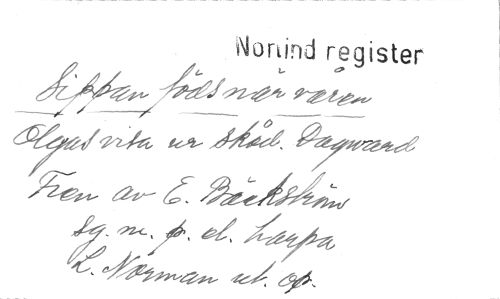 Nonind register
Sippan föds när våren
Olgas visa ur skåd. Dagward
Frey av E. Bäckström
sg. m. p. el. harpa
L. Norman ut. op.